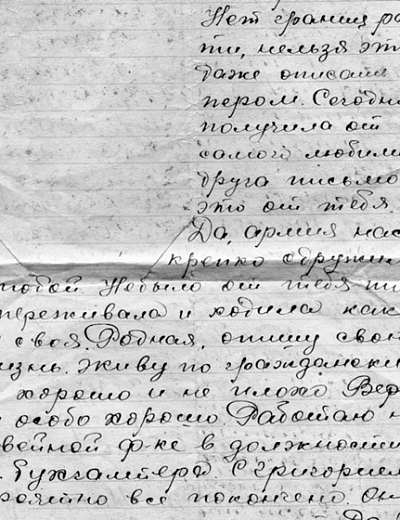 Нет границ ра
ти, нельзя эт
даже описать
пером. Сегодн
получила от
самого любим
друга письмо
это от тебя.
Да, армия нас
крепко сдружил
тобой Небыло от тебя пи
переживала и ходила как
своя. Родная, опишу свою
изнь. Живу по гражданск
хорошо и не плохо Вер
особо хорошо. Работаю н
вейной ф-ке в должност
Бухгалтера. С Григорием
роятно все покончено. Он